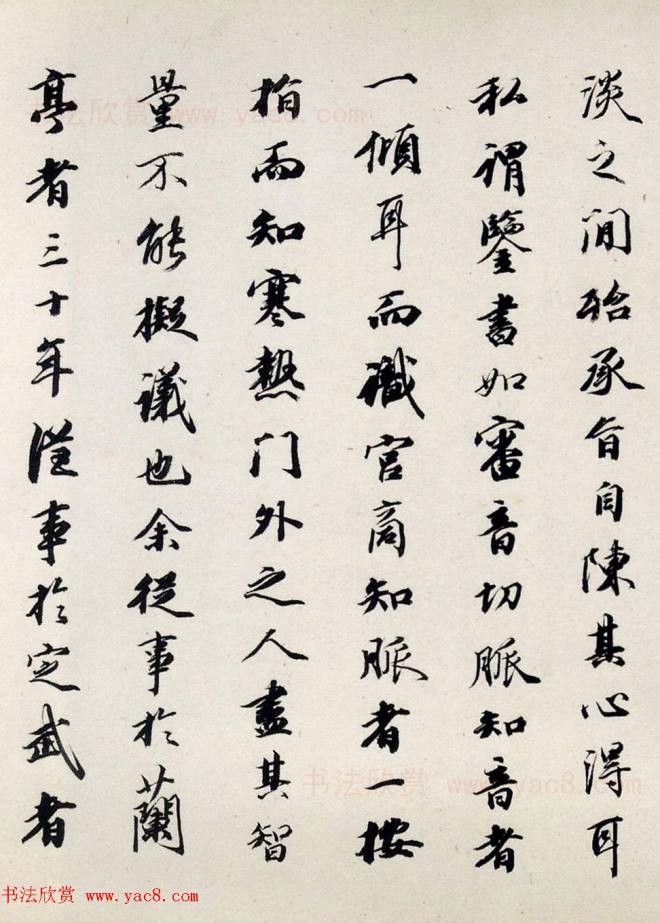 淡之間殆承旨自陳其心得耳
私謂鑒書如審音切脈知音者
一傾耳而識宫商知脈者一按
指而知寒熱門外之人盡其智
量不能擬議也余從事於蘭
亭者三十年從事於定武者
书法欣赏 www.yac8.com
书法欣赏 www.yac8.com
书法欣赏 www.yac8.com